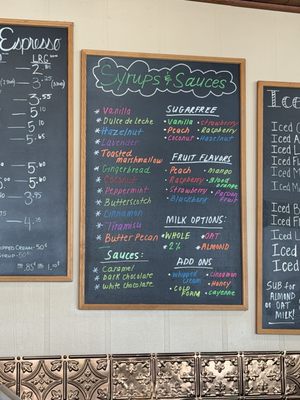 Espresso
LRG
2.
3.
3.55
5.10
5.10
5.65
5.60
5.60
3.95
4.35
WHIPPED CREAM - 50¢
85¢ 1.10
Syrups & Sauces
* Vanilla
* Dulce de leche
* Hazelnut
* Lavender
* Toasted
marshmallow
* Gingerbread
* Coconut
* Peppermint
* Butterscotch
* Cinnamon
* Tiramisu
* Butter Pecan
Sauces:
* Caramel
* Dark chocolate
* White chocolate
SUGARFREE
• Vanilla • strawberry
• Peach • Raspberry
• Coconut • Hazelnut
FRUIT FLAVORS
• Peach • mango
• Raspberry • Blood
orange
• Strawberry • Passion
Fruit
• Blackberry
MILK OPTIONS:
• WHOLE • OAT
• 2% • ALMOND
ADD ONS
• whipped
cream • cinnamon
• Honey
• COLD
FOAM • cayenne
Iced
Iced
Iced
Iced
Iced
Iced
Iced
Iced
Iced
SUB FOR
ALMOND
OR OAT
MILK!